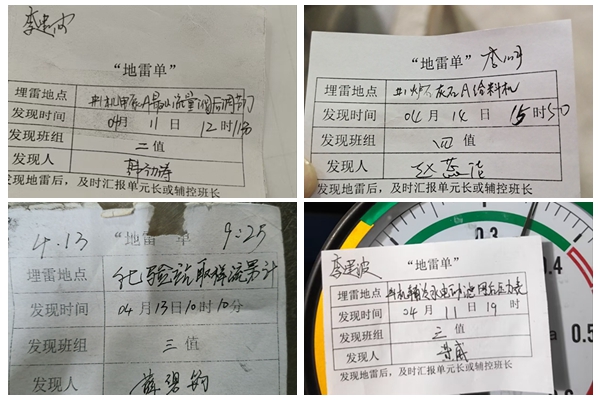 李建波
“地雷单”
埋雷地点
发现时间 04月 11日 12时
发现班组 二值
发现人
发现地雷后,及时汇报单元长或辅控班长
“地雷单”
埋雷地点 #1炉石灰石A给料机
发现时间 04月 14日 15时50
发现班组 四值
发现人
发现地雷后,及时汇报单元长或辅控班长
4.13 “地雷单 9:25
埋雷地点 化验站取样流量计
发现时间 04月13日10时10分
发现班组 三值
发现人 薛碧钧
李建波
“地雷单”
埋雷地点
发现时间 04月 11日 19时
发现班组 三值
发现人
发现地雷后,及时汇报单元长或辅控班长
0.3
0.4
0.5
0.6